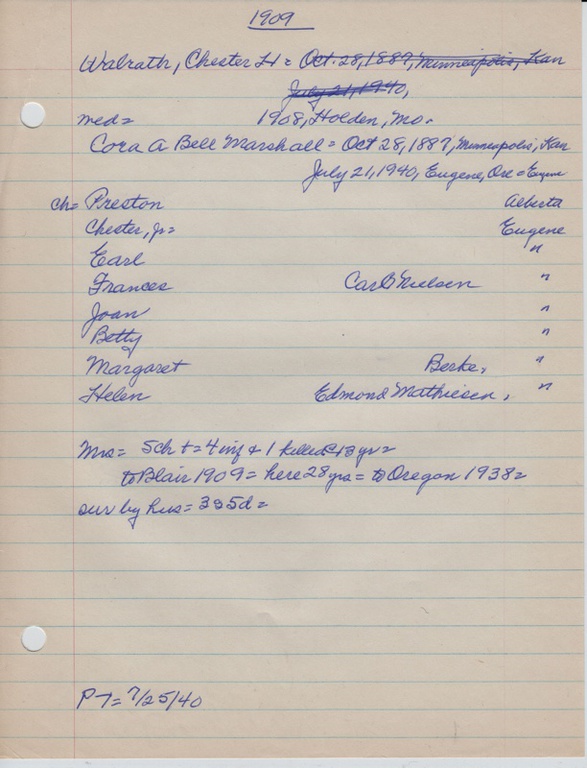 1909
Walrath, Chester H = Oct. 28, 1887, Minneapolis, Kan
July 21, 1940,
med = 1908, Holden, Mo.
Cora A Bell Marshall = Oct 28, 1887, Minneapolis, Kan
July 21, 1940, Eugene, Ore = Eugene
ch = Preston Alberta
Chester, Jr = Eugene
Earl "
Frances Carl Nielsen "
Joan "
Betty "
Margaret Berke, "
Helen Edmond Mathiesen, "
Mrs = 5 ch + = 4 inf & 1 killed @ 13 yr =
to Blair 1909 = here 28 yrs = to Oregon 1938 =
sur by hus = 3s 5d =
P T = 7/25/40